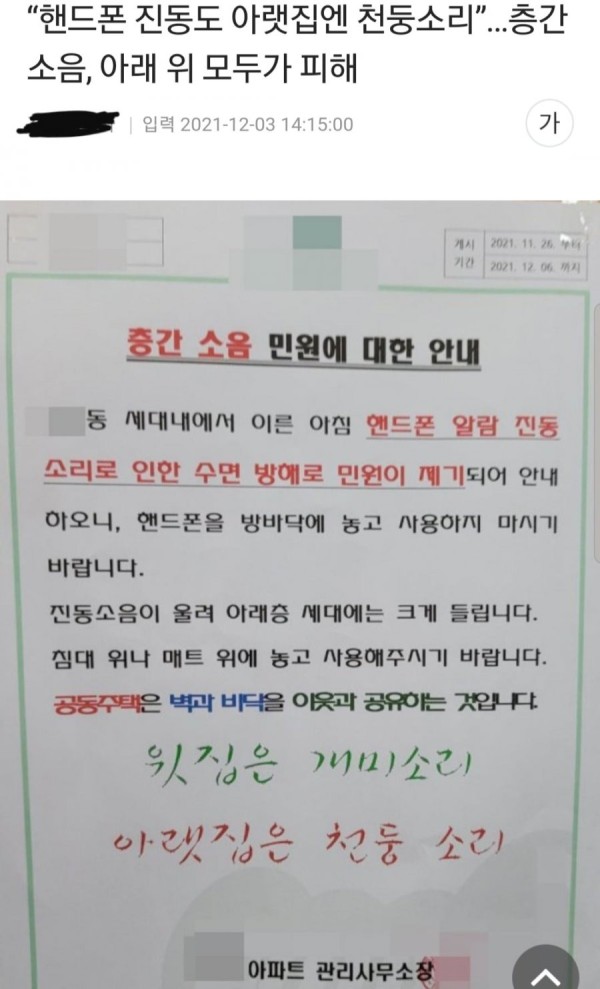 “핸드폰 진동도 아랫집엔 천둥소리”...층간
소음, 아래 위 모두가 피해
입력 2021-12-03 14:15:00
가
게시
기간
2021. 11. 26. 부터
2021. 12. 06. 까지
층간 소음 민원에 대한 안내
동 세대내에서 이른 아침 핸드폰 알람 진동
소리로 인한 수면 방해로 민원이 제기되어 안내
하오니, 핸드폰을 방바닥에 놓고 사용하지 마시기
바랍니다.
진동소음이 울려 아래층 세대에는 크게 들립니다.
침대 위나 매트 위에 놓고 사용해주시기 바랍니다.
공동주택은 벽과 바닥을 이웃과 공유하는 것입니다
윗집은 개미소리
아랫집은 천둥 소리
아파트 관리사무소장